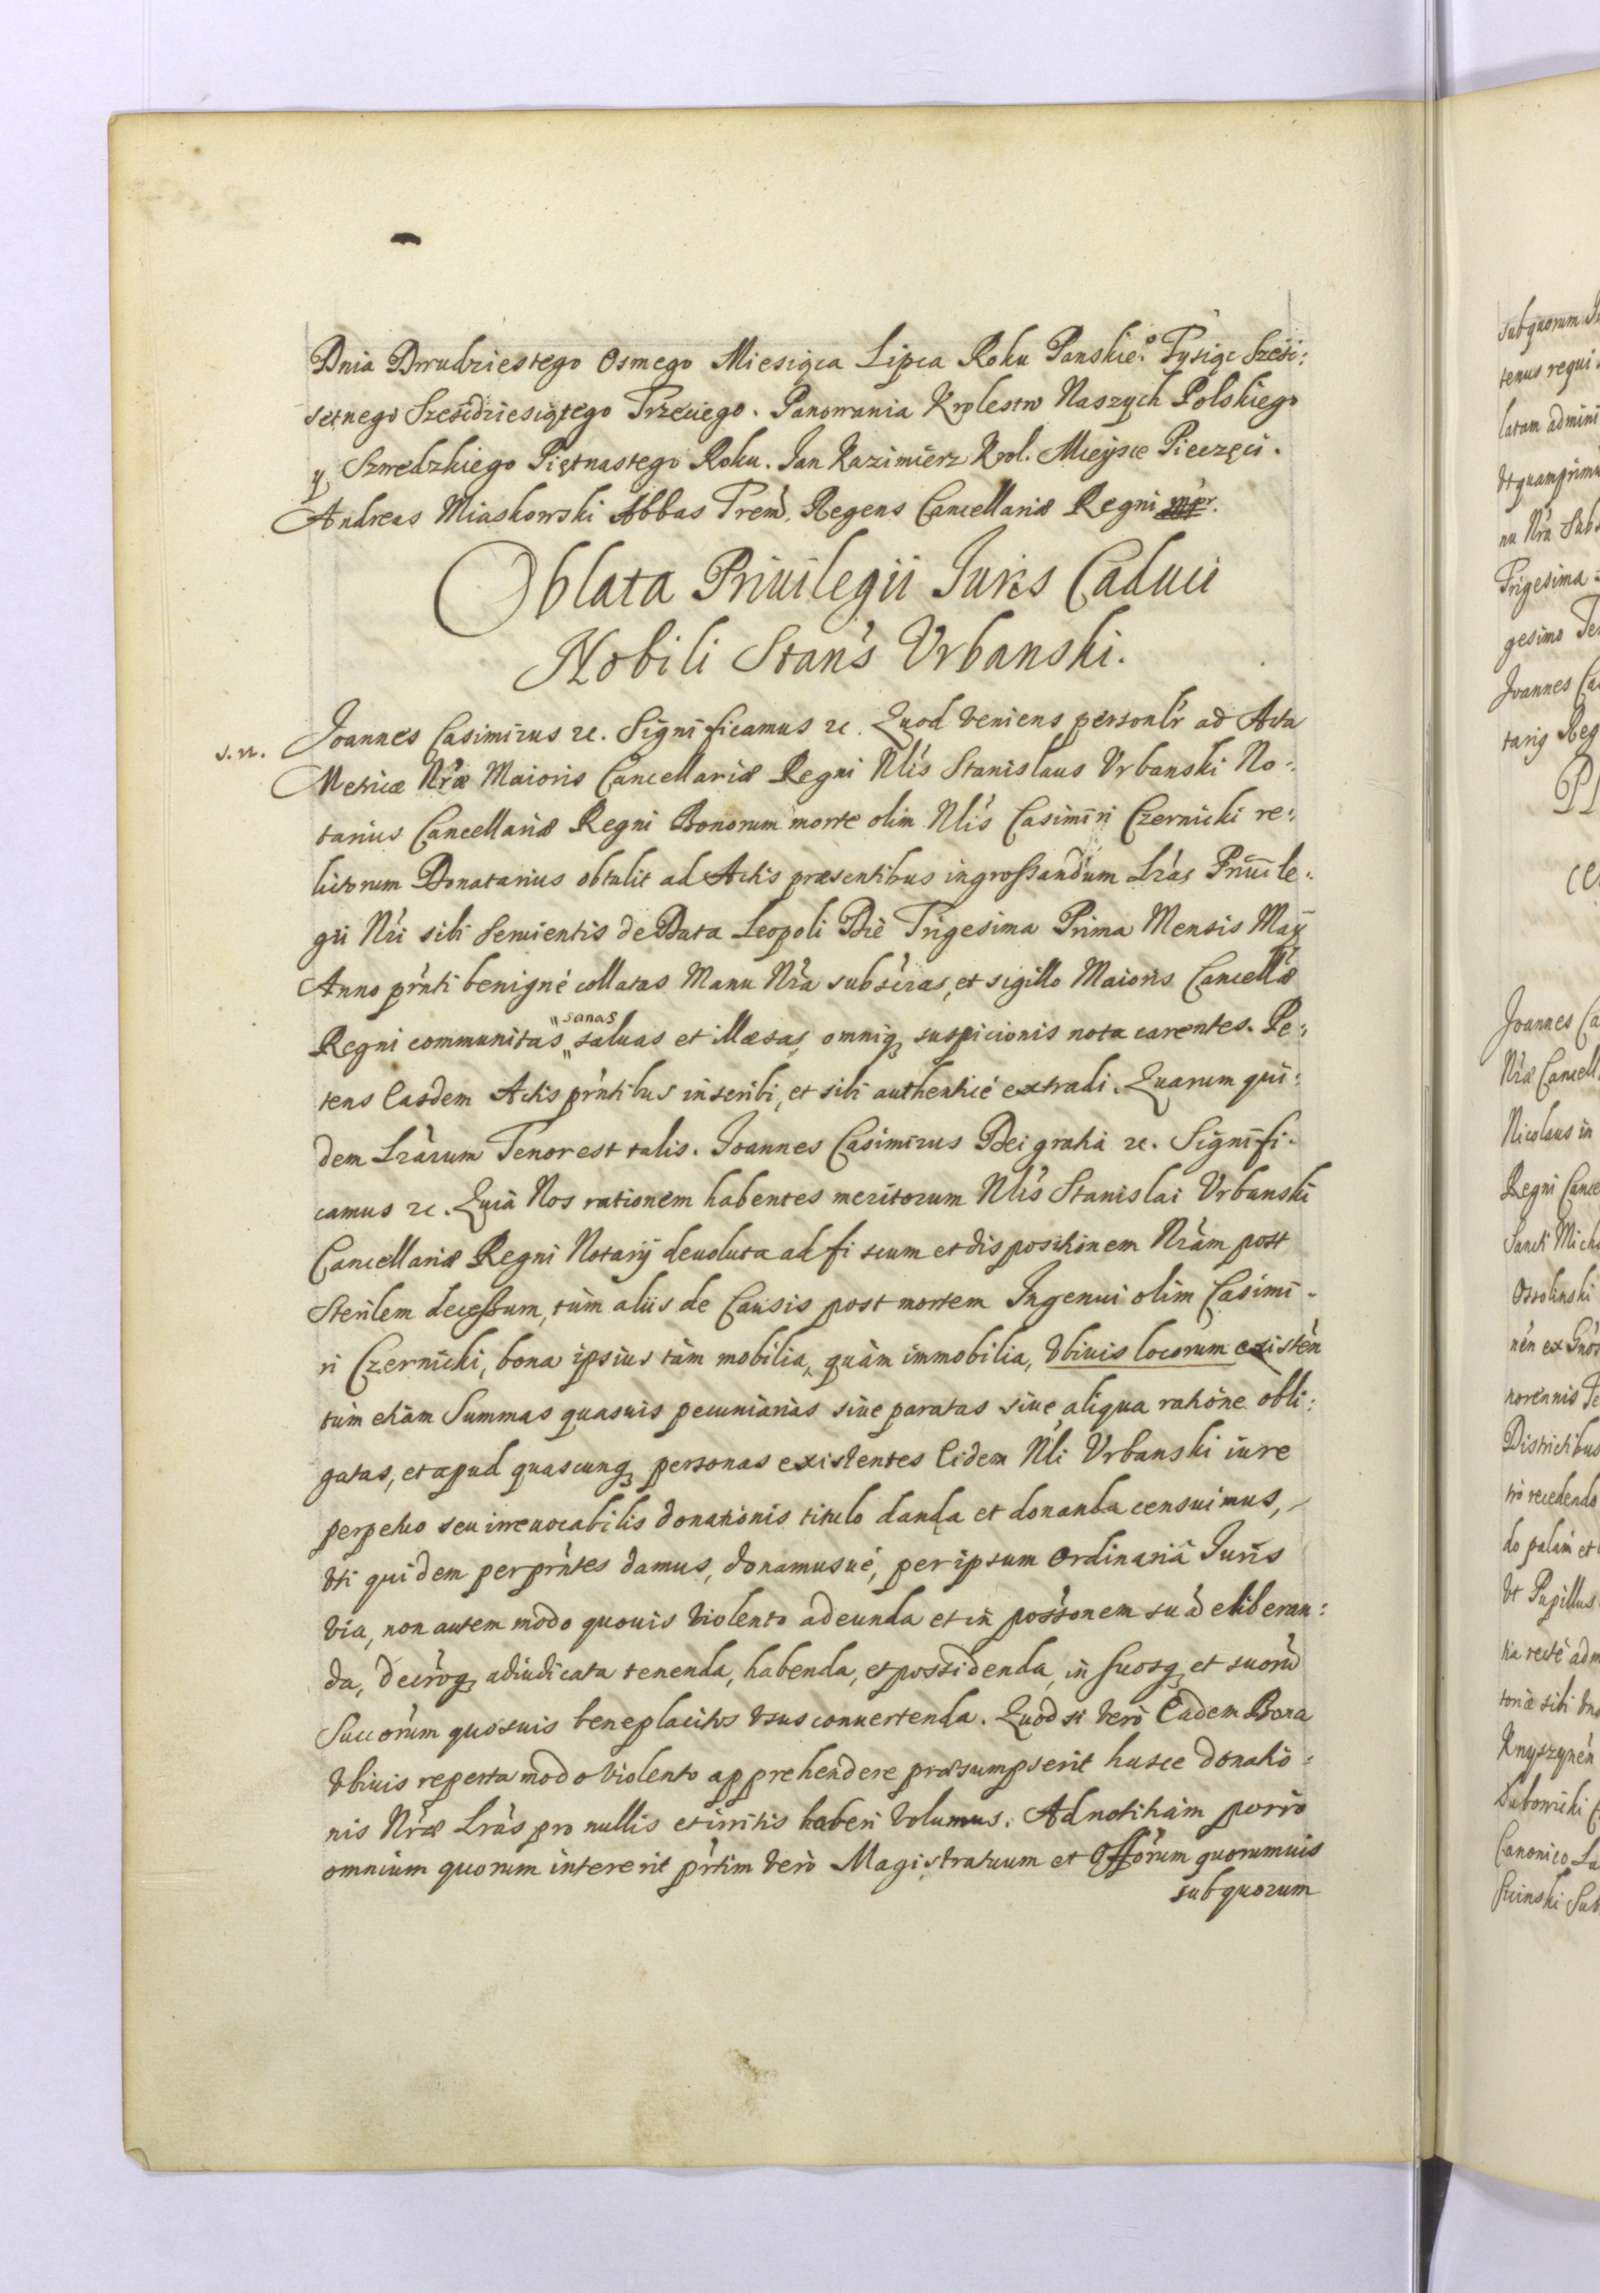 Dnia Dwudziestego Osmego Miesiąca Lipca Roku Panskie.º Tysiąc Sześć:
setnego Sześcdziesiątego Trzeciego. Panowania Krolestw Naszych Polskiego
y Szwedzkiego Piętnastego Roku. Jan Kazimierz Krol. Mieysce Pieczęci.
Andreas Miaskowski Abbas Trem̃. Regens Cancellariæ Regni mpr.
Oblata Priuilegii Iuris Caduci
Nobili Stan̓s Vrbanski.
s.n.
Joannes Casimirus &c. Significamus &c. Quod veniens personlr̓ ad Acta
Metricæ Nr̓æ Maioris Cancellariæ Regni Nlis̓ Stanislaus Vrbanski No:
tarius Cancellariæ Regni Bonorum morte olim Nlis̓ Casimiri Czernicki re:
lictorum Donatarius obtulit ad Actis præsentibus ingrossandum Lr̓as Priuile:
gii Nr̓i sibi seruientis de Data Leopoli Die Trigesima Prima Mensis Maÿ
Anno prn̓ti benignè collatas Manu Nr̓a subscr̓as, et sigillo Maioris Cancellæ̓
Regni communitas "sanas" saluas et illæsas, omniq; suspicionis nota carentes. Pe:
tens Easdem Actis prn̓tibus inscribi, et sibi authenticè extradi. Quarum qui:
dem Lr̓arum Tenor est talis. Joannes Casimirus Dei gratiâ &c. Signifi:
camus &c. Quia Nos rationem habentes meritorum Nlis̓ Stanislai Vrbanski
Cancellariæ Regni Notarij deuoluta ad fiscum et dispositionem Nr̓am post
Sterilem decessum, tùm aliis de Causis post mortem Ingenui olim Casimi:
ri Czernicki, bona ipsius tàm mobilia, quàm immobilia, vbiuis locorum existen̓
tùm etiàm Summas quasuis pecuniarias siue paratas siue aliqua ratione obli:
gatas, et apud quascunq; personas existentes Eidem Nli̓ Vrbanski iure
perpetuo seu irreuocabilis donationis titulo danda et donanda censuimus,
vti quidem per prn̓tes damus, donamusué, per ipsum ordinariâ Iuris
via, non autem modo quouis violento adeunda et in poss̓onem suã deliberan:
da, decr̓oq; adiudicata tenenda, habenda, et possidenda, in suosq; et suorũ
Succor̓um quosuis beneplacitos vsus conuertenda. Quod si verò Eadem Bona
vbiuis reperta modo violento apprehendere præsumpserit hasce donatio:
nis Nr̓æ Lr̓as pro nullis et irritis haberi volumus. Ad notitiam porrò
omnium quorum intererit pr̓tim verò Magistratuum et Offor̓um quorumuis
sub quorum